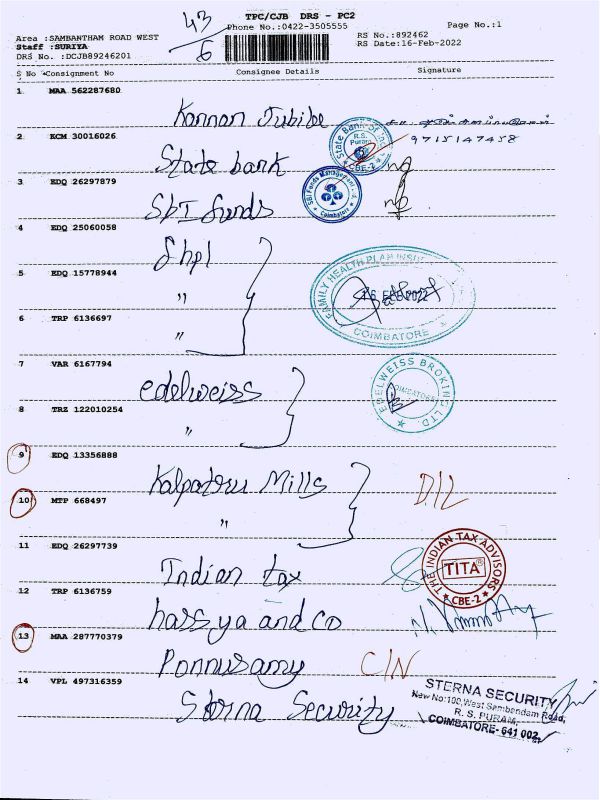 TPC/CJB DRS - PC2
Phone No.:0422-3505555
Page No.:1
43/6
Area :SAMBANTHAM ROAD WEST
Staff :SURIYA
DRS No. :DCJB89246201
RS No.:892462
RS Date:16-Feb-2022
S No Consignment No Consignee Details Signature
1 MAA 562287680
Kannan Jubibe
2 KCM 30016026
9715147458
State bank
State Bank Of R.S. Puram CBE-2
3 EDQ 26297879
SBI funds
SBI Funds Management Coimbatore
4 EDQ 25060058
Shpl
5 EDQ 15778944
"
FAMILY HEALTH PLAN COIMBATORE
FEB 2022
6 TRP 6136697
"
7 VAR 6167794
edelweiss
EDELWEISS BROKING LTD. COIMBATORE
8 TRZ 122010254
"
9 EDQ 13356888
Kalpatru Mills
D/L
10 MTP 668497
"
11 EDQ 26297739
Indian tax
THE INDIAN TAX ADVISORS TITA CBE-2
12 TRP 6136759
hassya and co
13 MAA 287770379
Ponnusamy
C/N
14 VPL 497316359
Sterna Security
STERNA SECURITY
New No:100,West Sambandam Road,
R. S. PURAM,
COIMBATORE- 641 002.